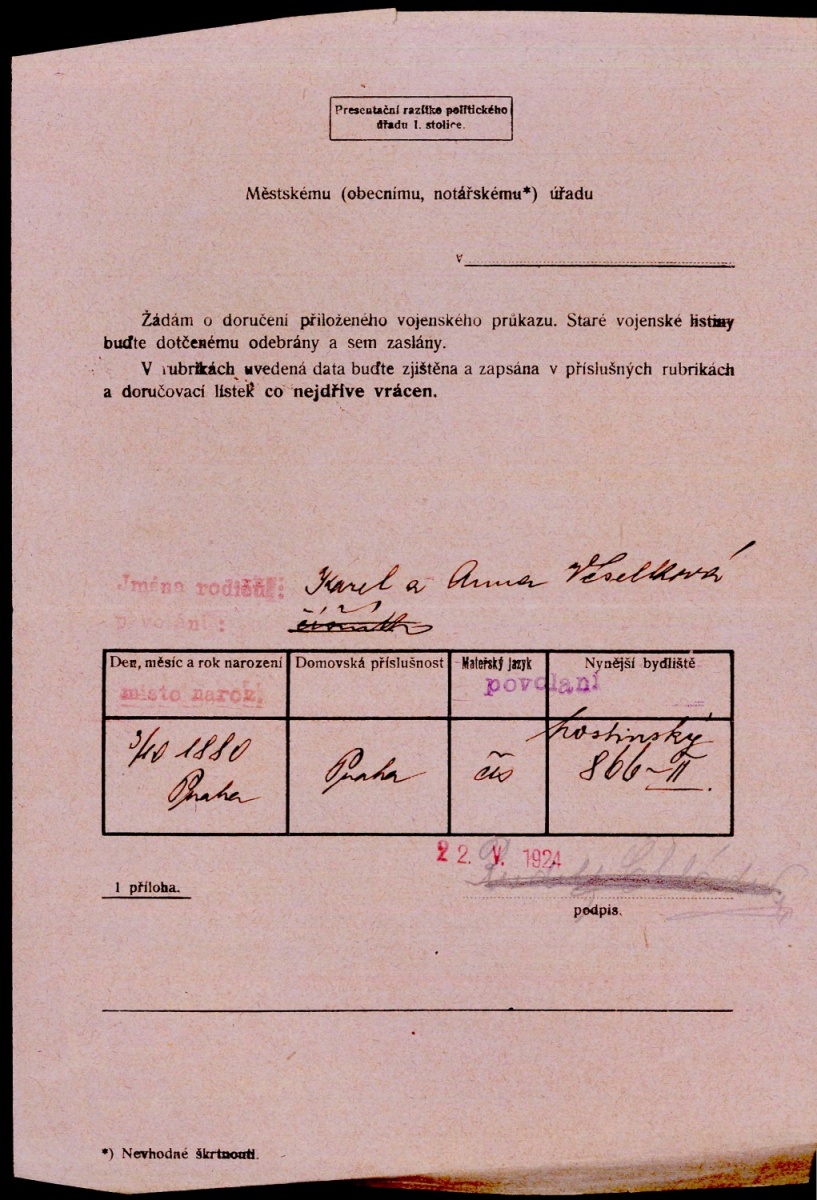 Presentační razítko politického
úřadu I. stolice.
Městskému (obecnímu, notářskému*) úřadu
v
Žádám o doručení přiloženého vojenského průkazu. Staré vojenské listiny
buďte dotčenému odebrány a sem zaslány.
V rubrikách uvedená data buďte zjištěna a zapsána v příslušných rubrikách
a doručovací lístek co nejdříve vrácen.
Jména rodičů: Karel a Anna Veselková
povolání:
Den, měsíc a rok narození Domovská příslušnost Mateřský jazyk Nynější bydliště
místo naroz. povolaní
hostinský
3/10 1880 Praha čes 866-II.
Praha
22. V. 1924
1 příloha.
podpis.
*) Nevhodné škrtnouti.